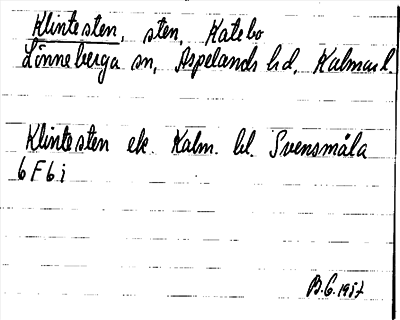 Klintesten, sten, Katebo
Lönneberga sn, Aspelands hd, Kalmar l.
Klintesten ek. Kalm. bl. Svensmåla
6 F 6 i
B.G. 1957